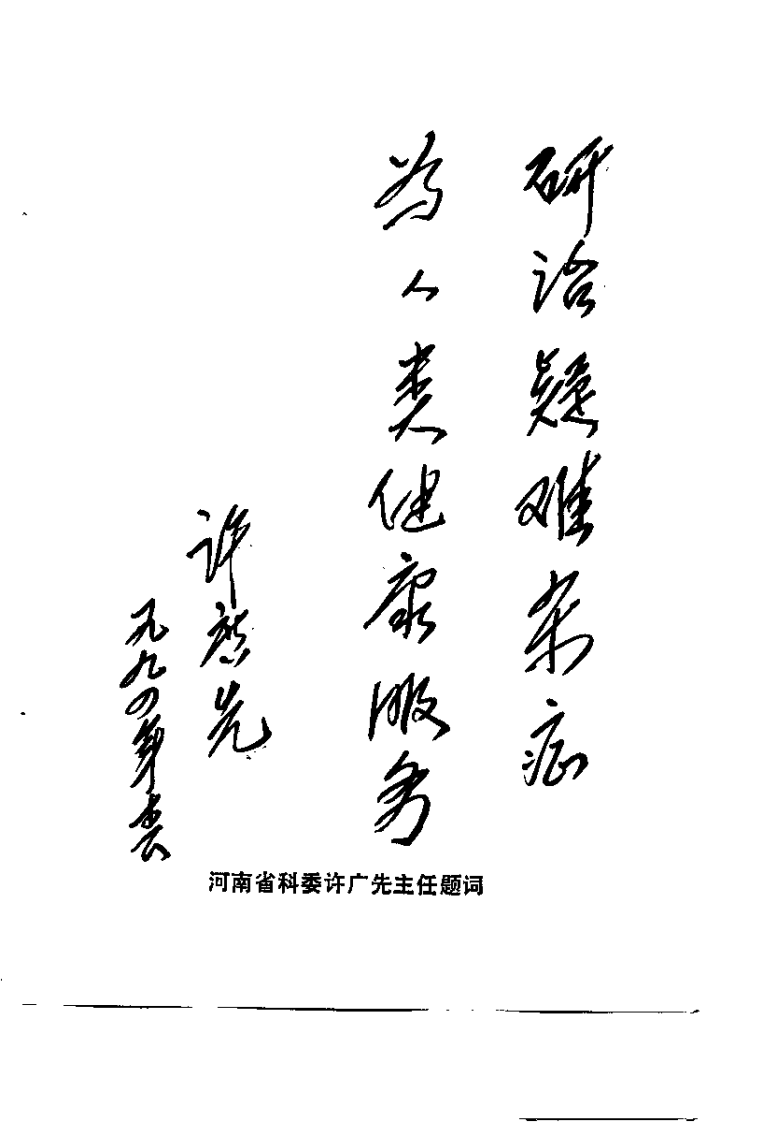 研治疑难杂症
为人类健康服务
许广先
一九九四年春
河南省科委许广先主任题词